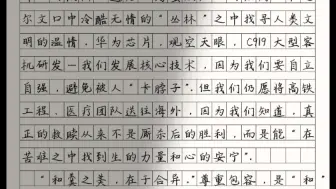 尔文口中冷酷无情的“丛林”之中找寻人类文
明的温情，华为芯片，观空天眼，C919大型客
机研发—我们发展核心技术，因为我们要自立
自强，避免被人“卡脖子”，但我们仍愿将高铁
工程，医疗团队送往海外，因为我们知道，真
正的救赎从来不是厮杀后的胜利，而是能“在
苦难之中找到生的力量和心的安宁”.
“和羹之美，在于合异.”尊重包容，是“和